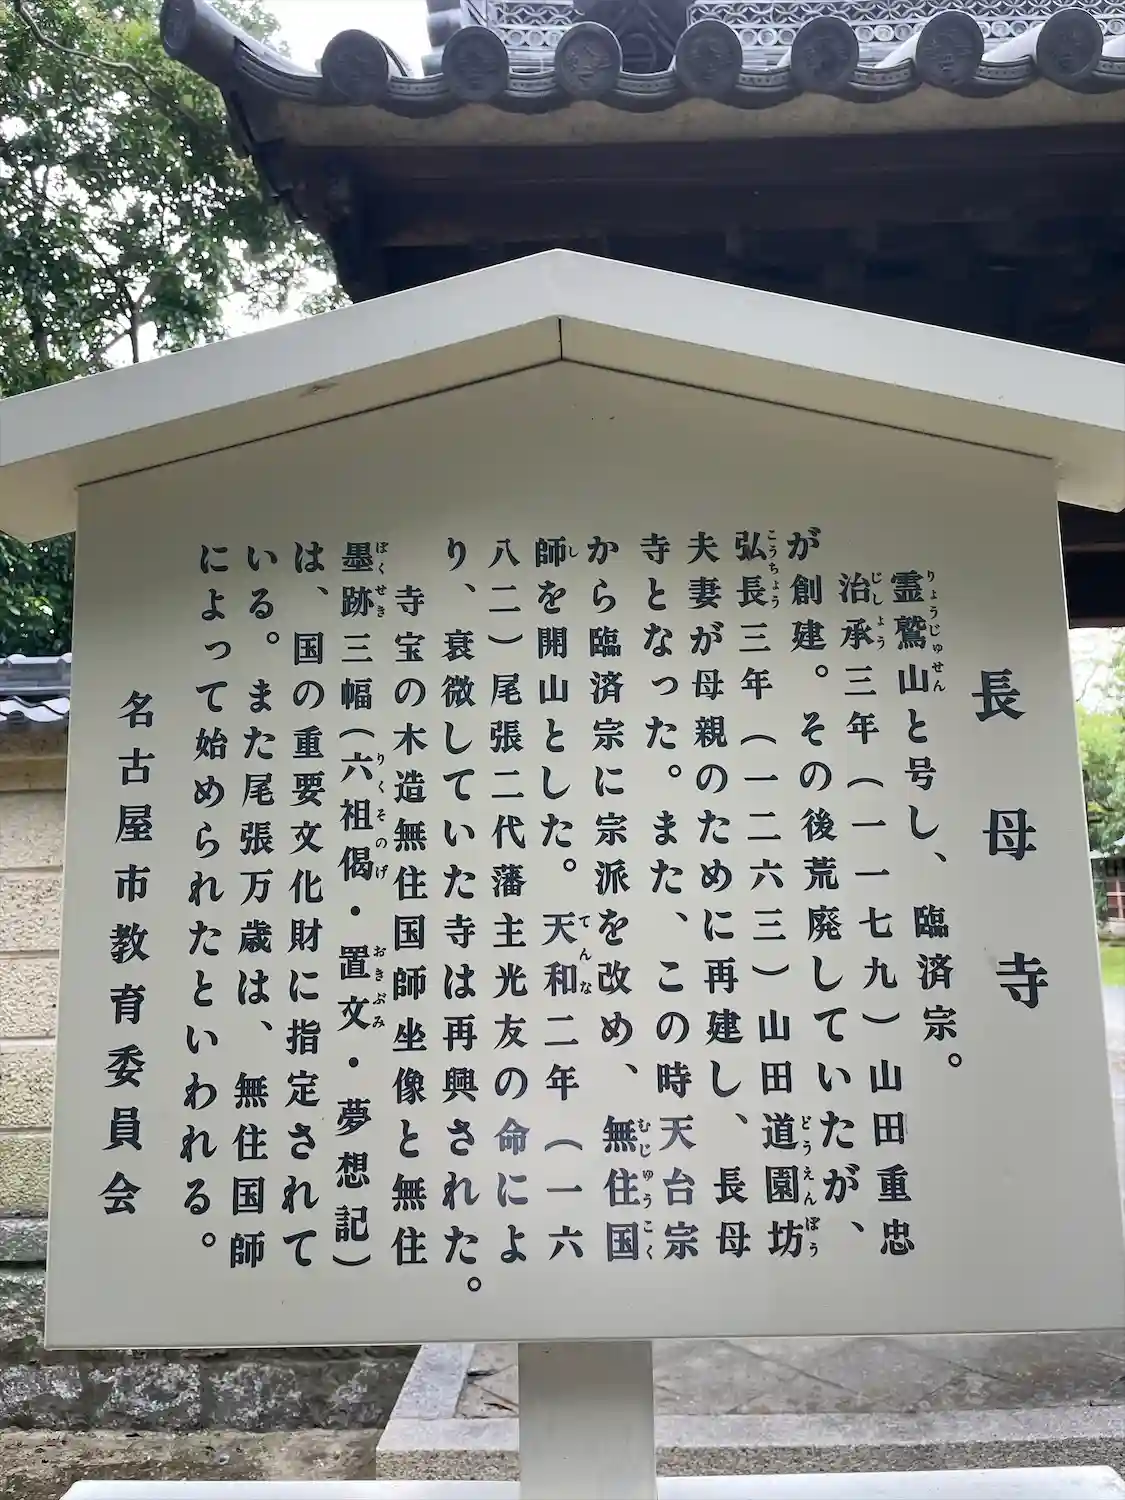 長母寺
霊鷲山と号し、臨済宗。
治承三年（一一七九）山田重忠
が創建。その後荒廃していたが、
弘長三年（一二六三）山田道園坊
夫妻が母親のために再建し、長母
寺となった。また、この時天台宗
から臨済宗に宗派を改め、無住国
師を開山とした。天和二年（一六
八二）尾張二代藩主光友の命によ
り、衰微していた寺は再興された。
寺宝の木造無住国師坐像と無住
墨跡三幅（六祖偈・置文・夢想記）
は、国の重要文化財に指定されて
いる。また尾張万歳は、無住国師
によって始められたといわれる。
名古屋市教育委員会